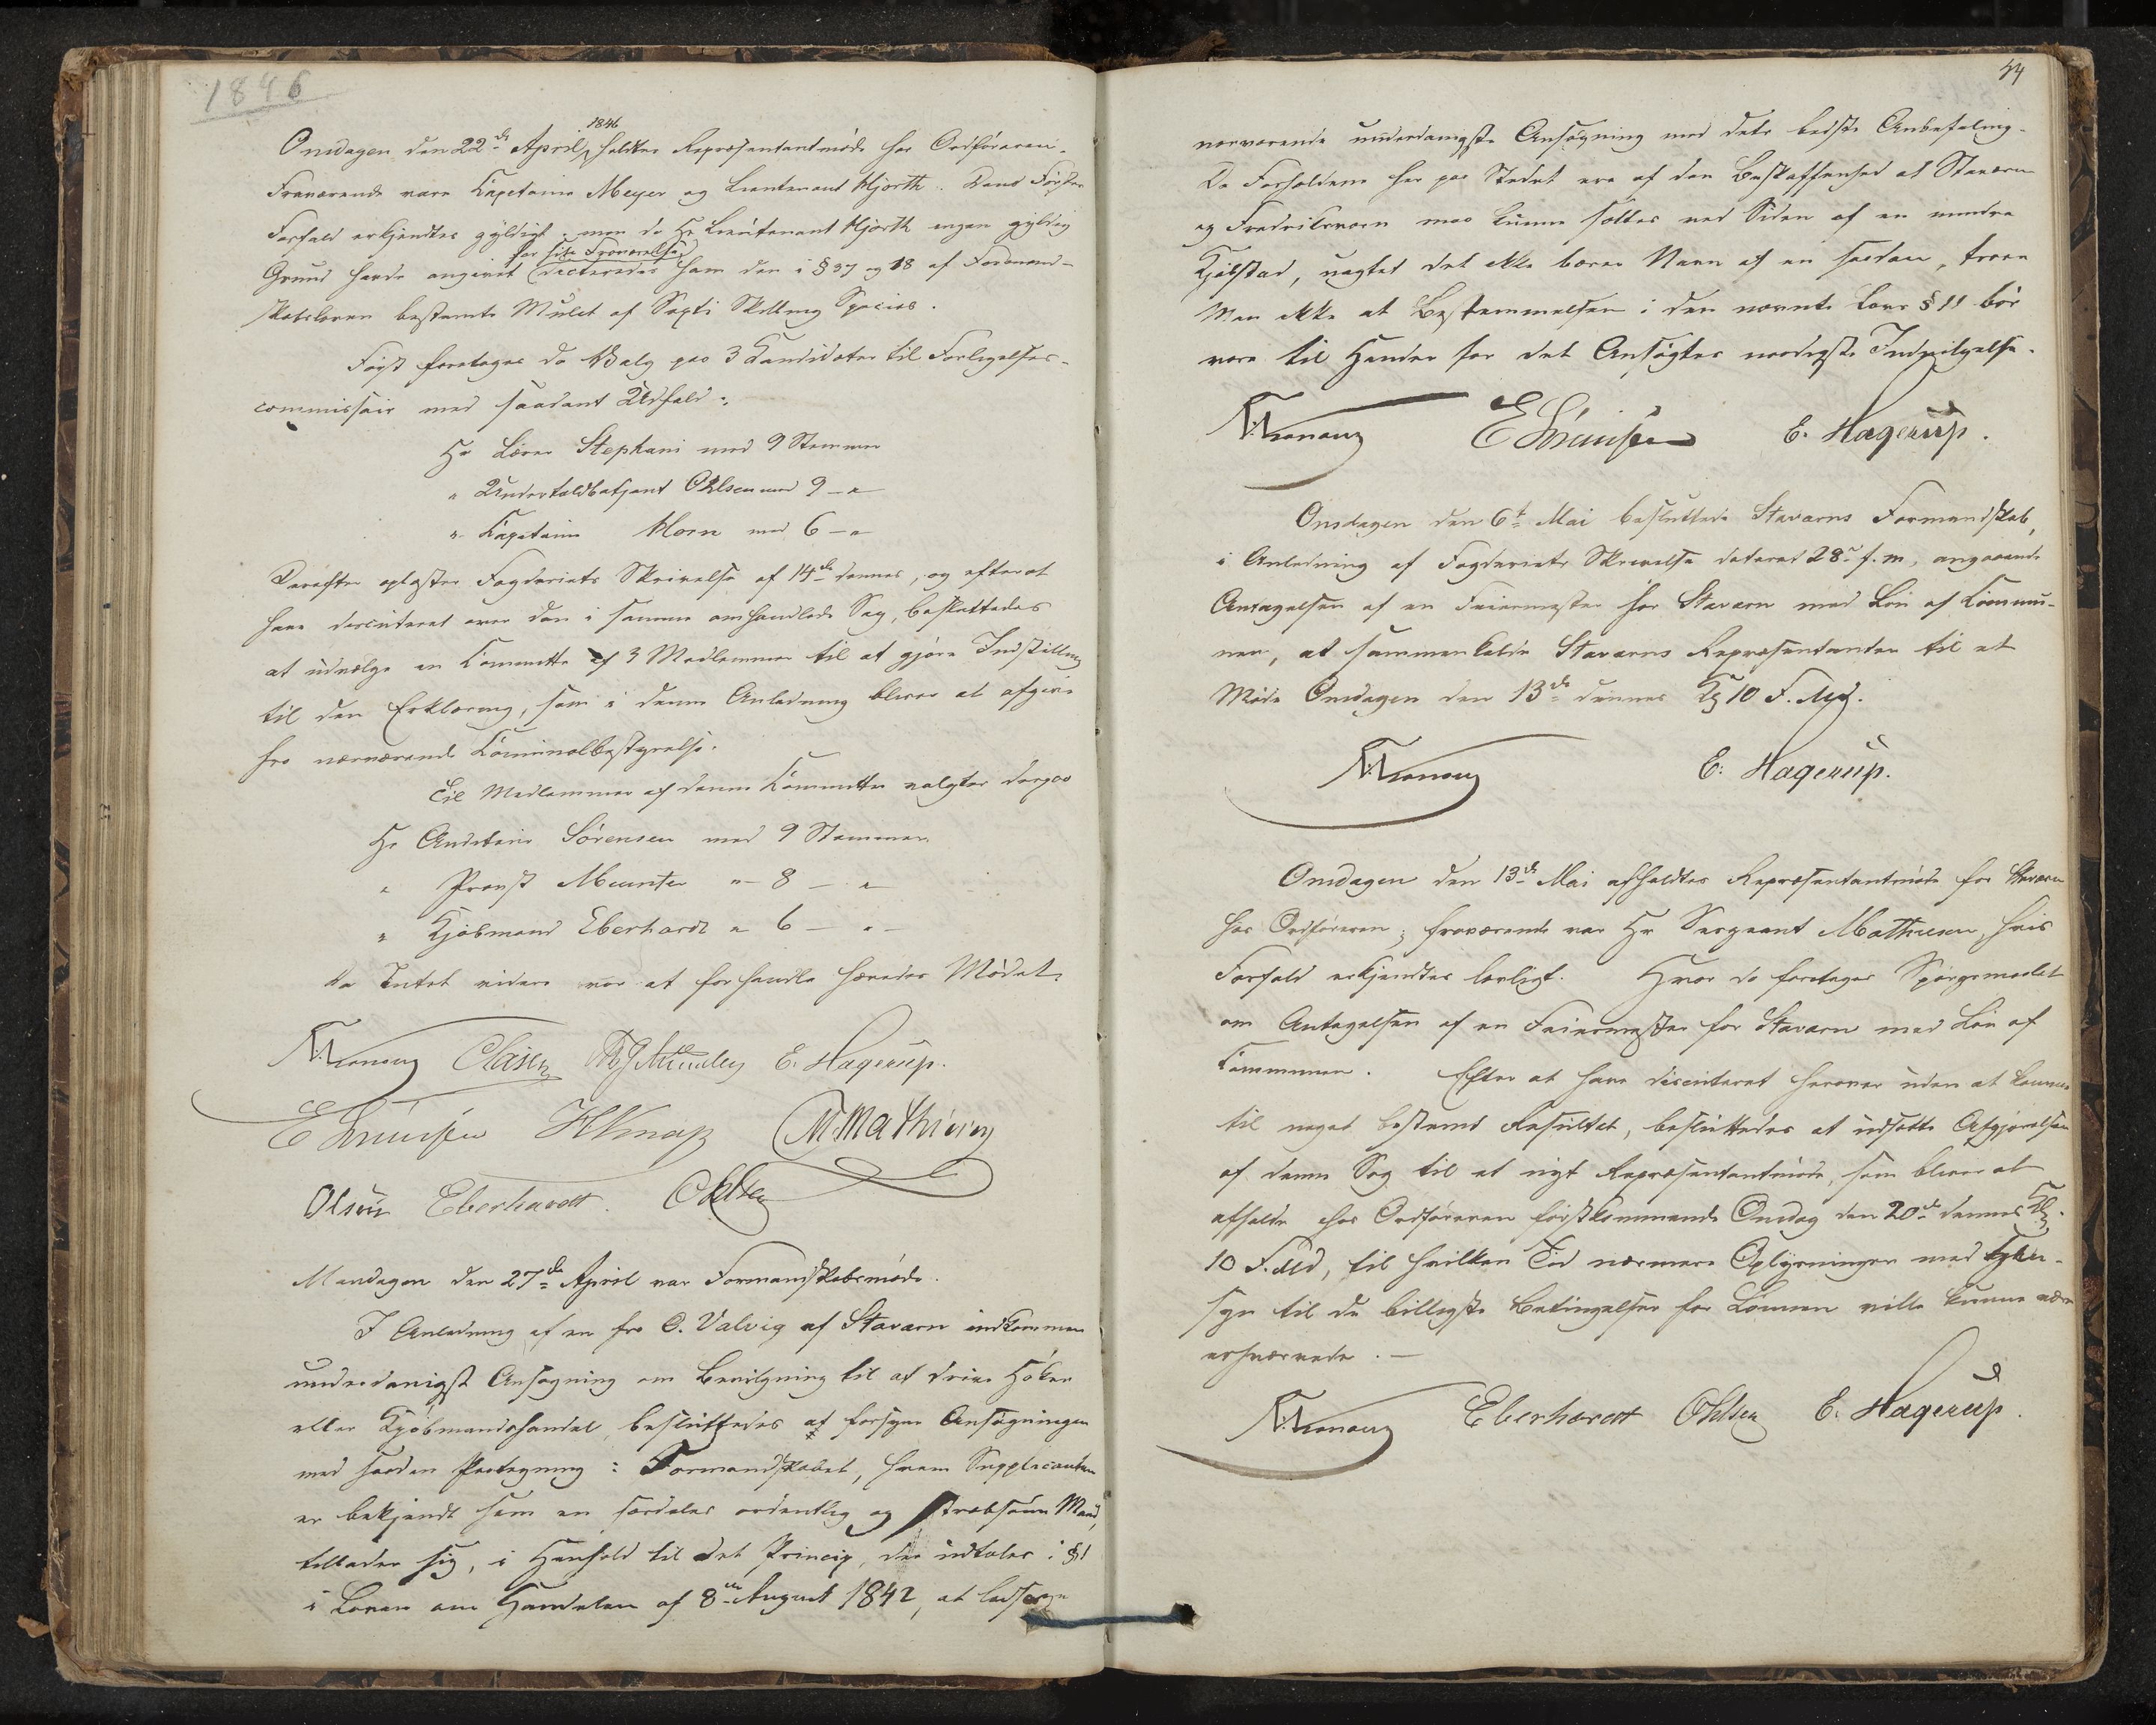 1846
Onsdagen den 22de April 1846 holdtes Repræsentantmøde hos Ordføreren.
Fraværende vare Kapetaine Meyer og Lieutenant Hjorth. Den Førstes
Forfald erkjendtes gyldigt; men da Hr Lieutenant Hjorth ingen gyldig
Grund havde angivet for sin Fraværelse dicteredes ham den i § 37 og 18 af Formand-
skabsloven bestemte Mulct af Sexti Skilling Species.
Først foretoges da Valg paa 3 Candidater til Forligelses-
commissair med saadant Udfald:
Hr Lærer Stephani med 9 Stemmer
" Undertoldbetjent Ohlsen med 9 - " -
" Kapetaine Horn med 6 - " -
Derefter oplæstes Fogderiets Skrivelse af 14de dennes, og efterat
have discuteret over den i samme omhandlede Sag, besluttedes
at udvælge en Committe af 3 Medlemmer til at gjøre Indstilling
til den Erklæring, som i denne Anledning bliver at afgive
fra nærværende Communalbestyrelse.
Til Medlemmer af denne Committe valgtes derpaa
Hr Auditeur Sörensen med 9 Stemmer
" Provst Munster " - 8 - " -
" Kjøbmand Eberhardt " 6 - " -
Da Intet videre var at forhandle hævedes Mødet.
Claisen E. Hagerup.
E Sörensen H Knap M. Mathiesen
Olsen Eberhardt. Ohlsen
Mandagen den 27de April var Formandskabsmøde.
I Anledning af en fra O. Valvig af Staværn indkommen
underdanigst Ansøgning om Bevilgning til at drive Høker
eller Kjøbmandshandel, besluttedes at forsyne Ansøgningen
med saadan Paategning: Formandskabet, hvem Supplicanten
er bekjendt som en særdeles ordentlig og stræbsom Mand,
tillader sig, i Henhold til det Princip, der udtales i § 1
i Loven om Handelen af 8de August 1842, at ledsage
44
nærværende underdanigste Ansøgning med dets bedste Anbefaling.
Da Forholdene her paa Stedet ere af den Beskaffenhed at Staværn
og Fredriksværn maa kunne sættes ved Siden af en mindre
Kjøbstad, uagtet det ikke bærer Navn af en saadan, troer
Man ikke at Bestemmelsen i den nævnte Lovs § 11 bør
være til Hinder for det Ansøgtes naadigste Indvilgelse.
E Sörensen E. Hagerup.
Onsdagen den 6te Mai besluttede Staværns Formandskab,
i Anledning af Fogderiets Skrivelse dateret 28de f. m, angaaende
Antagelsen af en Feiermester for Staværn med Løn af Commu-
nen, at sammenkalde Staværns Repræsentanter til et
Møde Onsdagen den 13de dennes Kl 10 F. Md.
E. Hagerup.
Onsdagen den 13de Mai afholdtes Repræsentantmøde for Staværn
hos Ordføreren; fraværende var Hr Sergeant Mathiesen, hvis
Forfald erkjendtes lovligt. Hvor da foretoges Spørgsmaalet
om Antagelsen af en Feiermester for Staværn med Løn af
Communen. Efter at have discuteret herover uden at komme
til noget bestemt Resultat, besluttedes at udsætte Afgjørelsen
af denne Sag til et nyt Repræsentantmøde, som bliver at
afholde hos Ordføreren førstkommende Onsdag den 20de dennes Kl.
10 F. Md, til hvilken Tid nærmere Oplysninger med Hen-
syn til de billigste Betingelser for Lønnen ville kunne være
erhvervede. —
Eberhardt Ohlsen E. Hagerup.